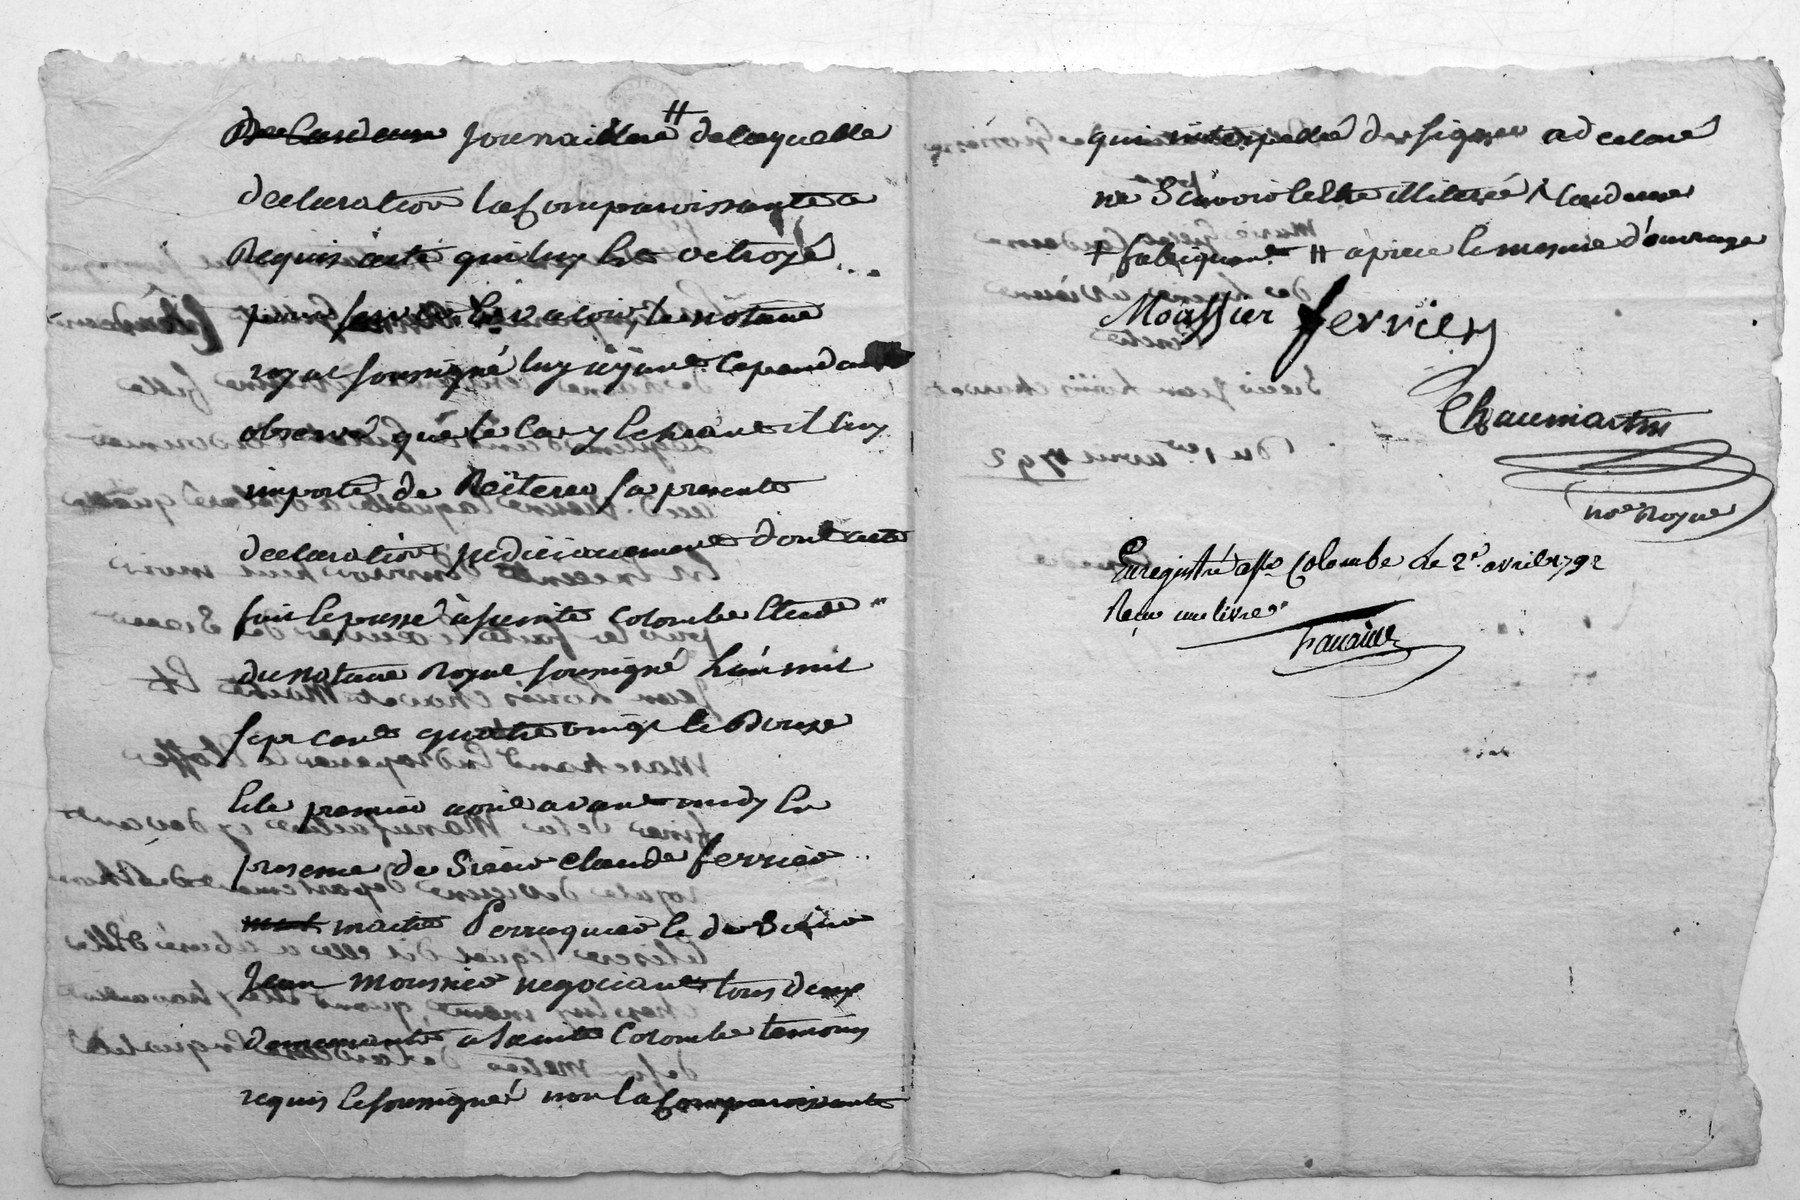 De Cardeuse journaillere ⧺ de laquelle
declaration la Comparoissante a
Requis acte qui luy Est octroyé
pour servir Et valoir le notaire
royal soussigné luy ayant Cependant
observé que le cas y Echeant il luy
importe de Reïterer sa presente
declaration judiciairement dont acte
fait Et passé à sainte Colombe Etude
du notaire Royal soussigné L'an mil
sept cent quatre vingt Et Douze
Et le premier avril avant midy En
presence de Sieur Claude ferrier
maitre Perruquier Et de Sieur
Jean moussier negociant tous deux
demeurants a Sainte Colombe temoins
requis Et soussignés non la Comparoissante
qui interpellée de signer a declaré
ne Scavoir Estre illiterée / Cardeuse
+ fabriquant ⧺ apiece Et mesure d'ouvrage
Moussier ferrier
Chaumartin
no.re Royal
Enregistré a Ste Colombe le 2.e avril 1792
Reçu une livre
Du 1er avril 1792